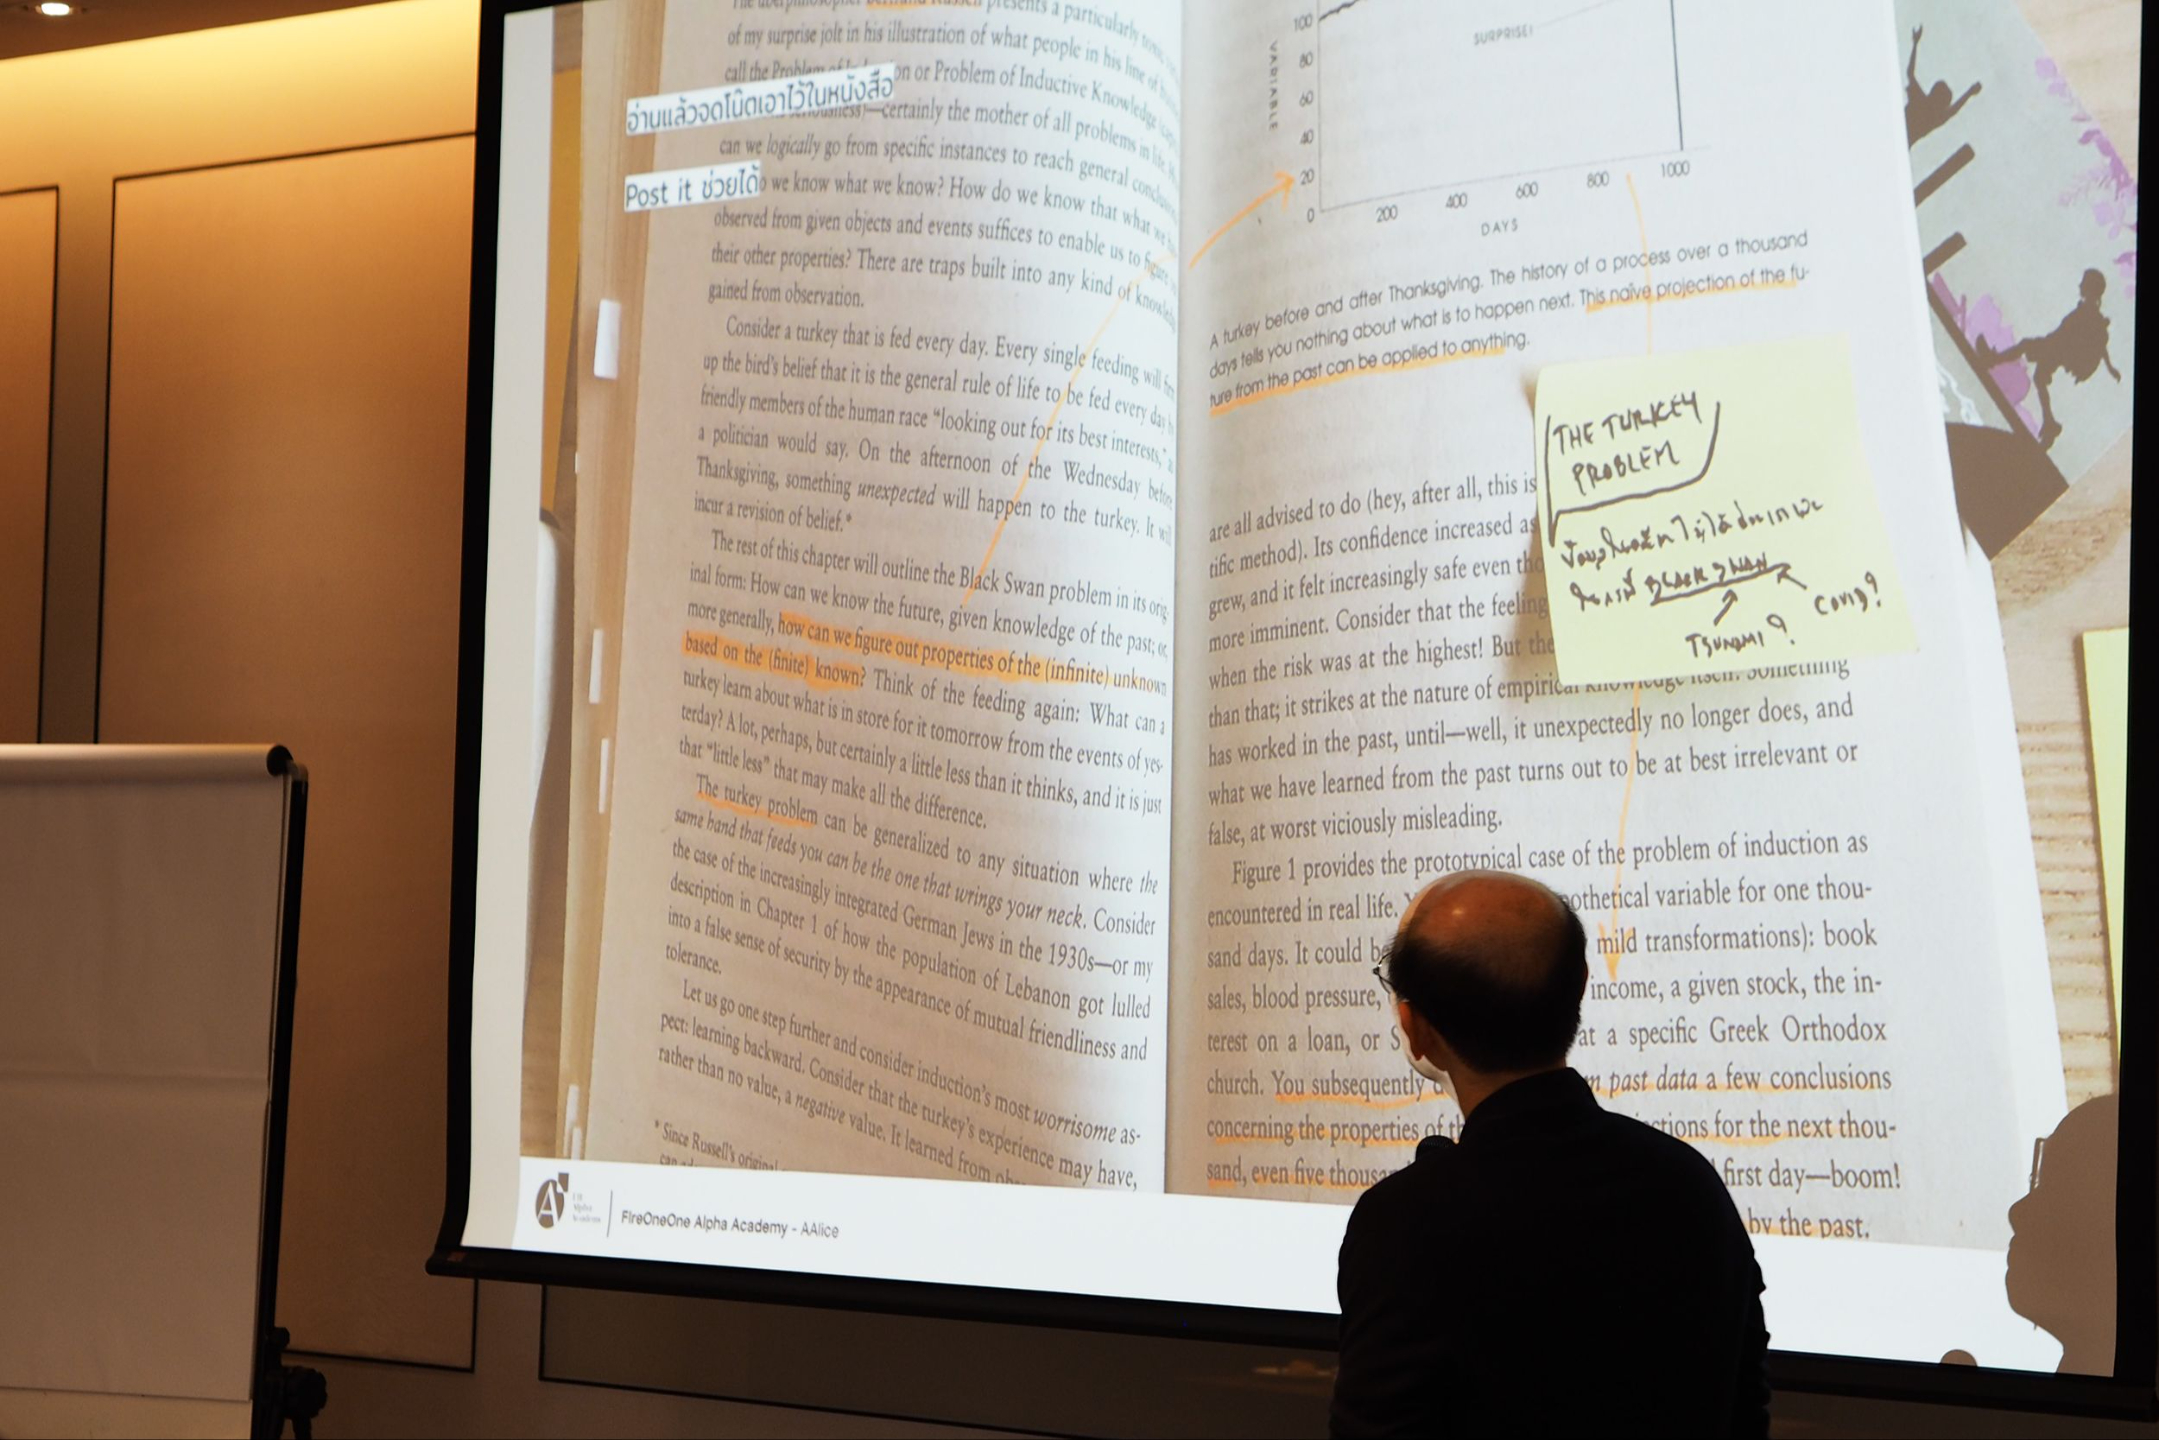 The uberphilosopher Bertrand Russell presents a particularly
of my surprise jolt in his illustration of what people in his line of
call the Problem of on or Problem of Inductive Knowledge
อ่านแล้วจดโน๊ตเอาไว้ในหนังสือ
seriousness)—certainly the mother of all problems in life.
can we logically go from specific instances to reach general
Post it ช่วยได้
o we know what we know? How do we know that what we
observed from given objects and events suffices to enable us to figure
their other properties? There are traps built into any kind of
gained from observation.
Consider a turkey that is fed every day. Every single feeding will
up the bird's belief that it is the general rule of life to be fed every day
friendly members of the human race "looking out for its best interests,"
a politician would say. On the afternoon of the Wednesday before
Thanksgiving, something unexpected will happen to the turkey. It will
incur a revision of belief.*
The rest of this chapter will outline the Black Swan problem in its orig-
inal form: How can we know the future, given knowledge of the past; or,
more generally, how can we figure out properties of the (infinite) unknown
based on the (finite) known? Think of the feeding again: What can a
turkey learn about what is in store for it tomorrow from the events of yes-
terday? A lot, perhaps, but certainly a little less than it thinks, and it is just
that "little less" that may make all the difference.
The turkey problem can be generalized to any situation where the
same hand that feeds you can be the one that wrings your neck. Consider
the case of the increasingly integrated German Jews in the 1930s—or my
description in Chapter 1 of how the population of Lebanon got lulled
into a false sense of security by the appearance of mutual friendliness and
tolerance.
Let us go one step further and consider induction's most worrisome as-
pect: learning backward. Consider that the turkey's experience may have,
rather than no value, a negative value. It learned from
* Since Russell's original
100
80
60
40
20
0
VARIABLE
SURPRISE!
200
400
600
800
1000
DAYS
A turkey before and after Thanksgiving. The history of a process over a thousand
days tells you nothing about what is to happen next. This naïve projection of the fu-
ture from the past can be applied to anything.
THE TURKEY
PROBLEM
BLACK SWAN
TSUNAMI?
COVID?
are all advised to do (hey, after all, this is
tific method). Its confidence increased as
grew, and it felt increasingly safe even tho
more imminent. Consider that the feeling
when the risk was at the highest! But the
than that; it strikes at the nature of empirical knowledge itself. Something
has worked in the past, until—well, it unexpectedly no longer does, and
what we have learned from the past turns out to be at best irrelevant or
false, at worst viciously misleading.
Figure 1 provides the prototypical case of the problem of induction as
encountered in real life. pothetical variable for one thou-
sand days. It could b mild transformations): book
sales, blood pressure, income, a given stock, the in-
terest on a loan, or S at a specific Greek Orthodox
church. You subsequently past data a few conclusions
concerning the properties of th ctions for the next thou-
sand, even five thousa first day—boom!
by the past.
FireOneOne Alpha Academy - AAlice